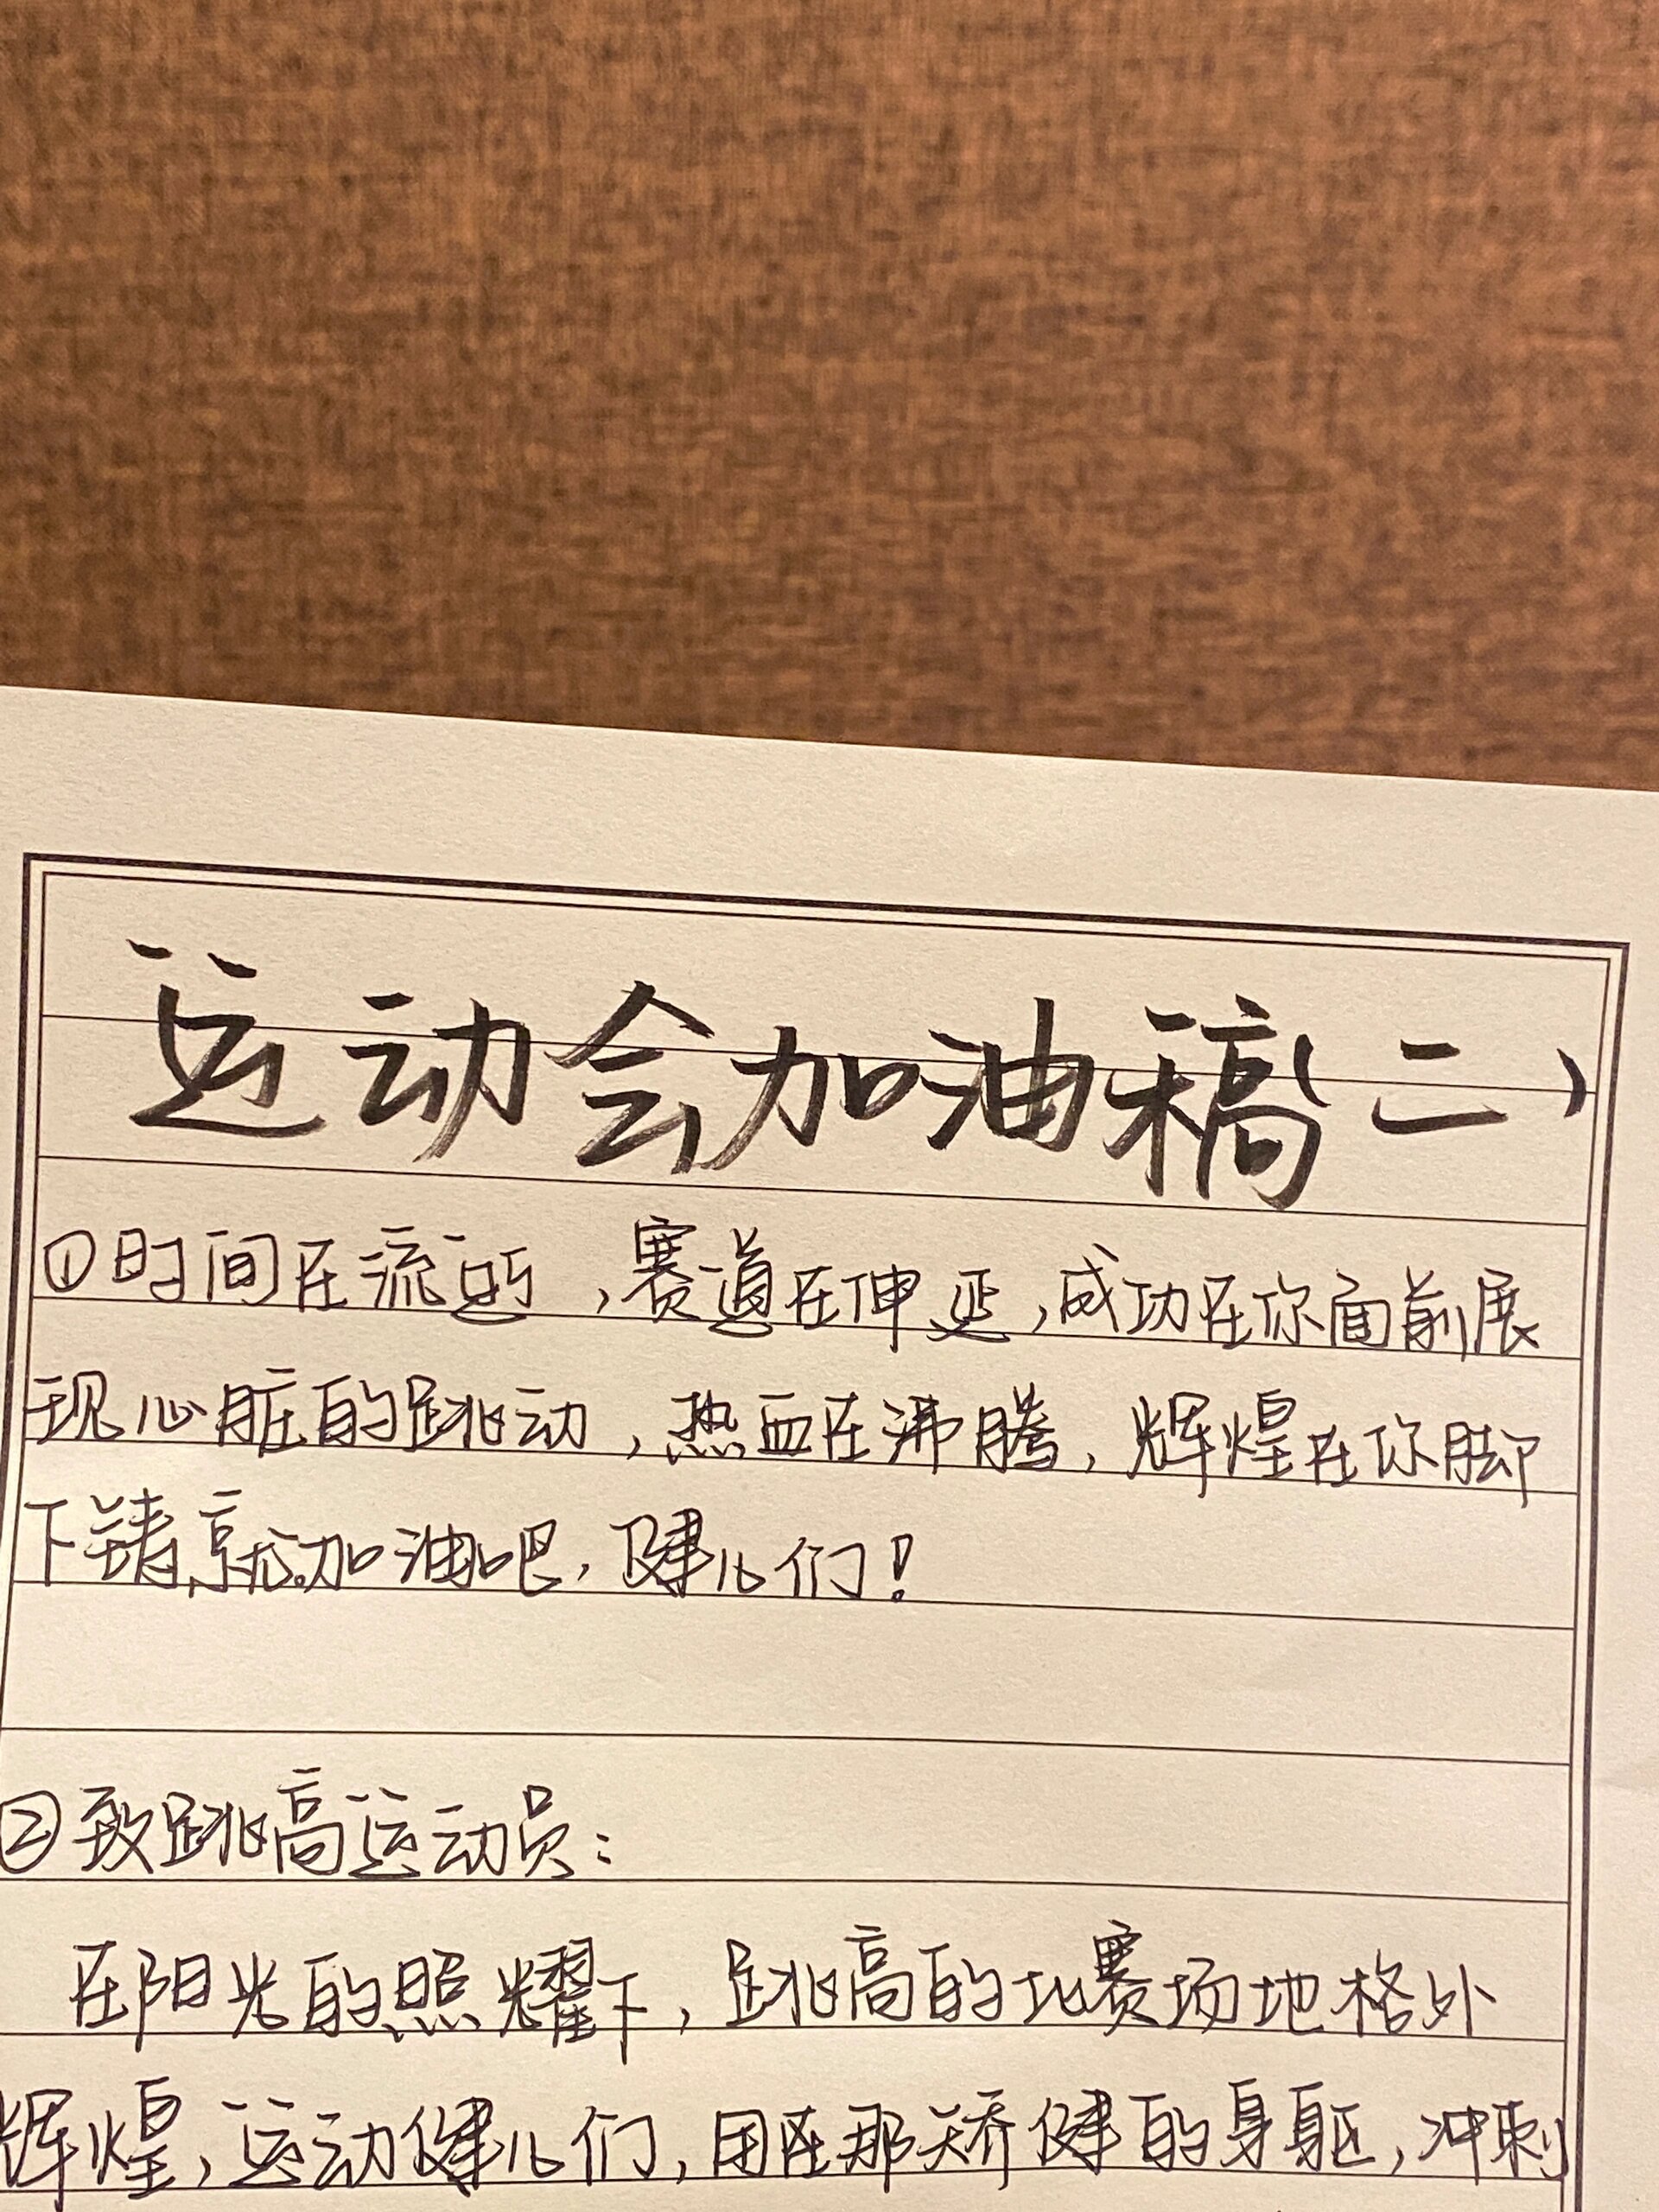 运动会加油稿(二)
①时间在流逝，赛道在伸延，成功在你面前展
现心脏的跳动，热血在沸腾，辉煌在你脚
下铸就。加油吧，健儿们！
②致跳高运动员：
在阳光的照耀下，跳高的比赛场地格外
辉煌，运动健儿们，用在那矫健的身躯，冲刺